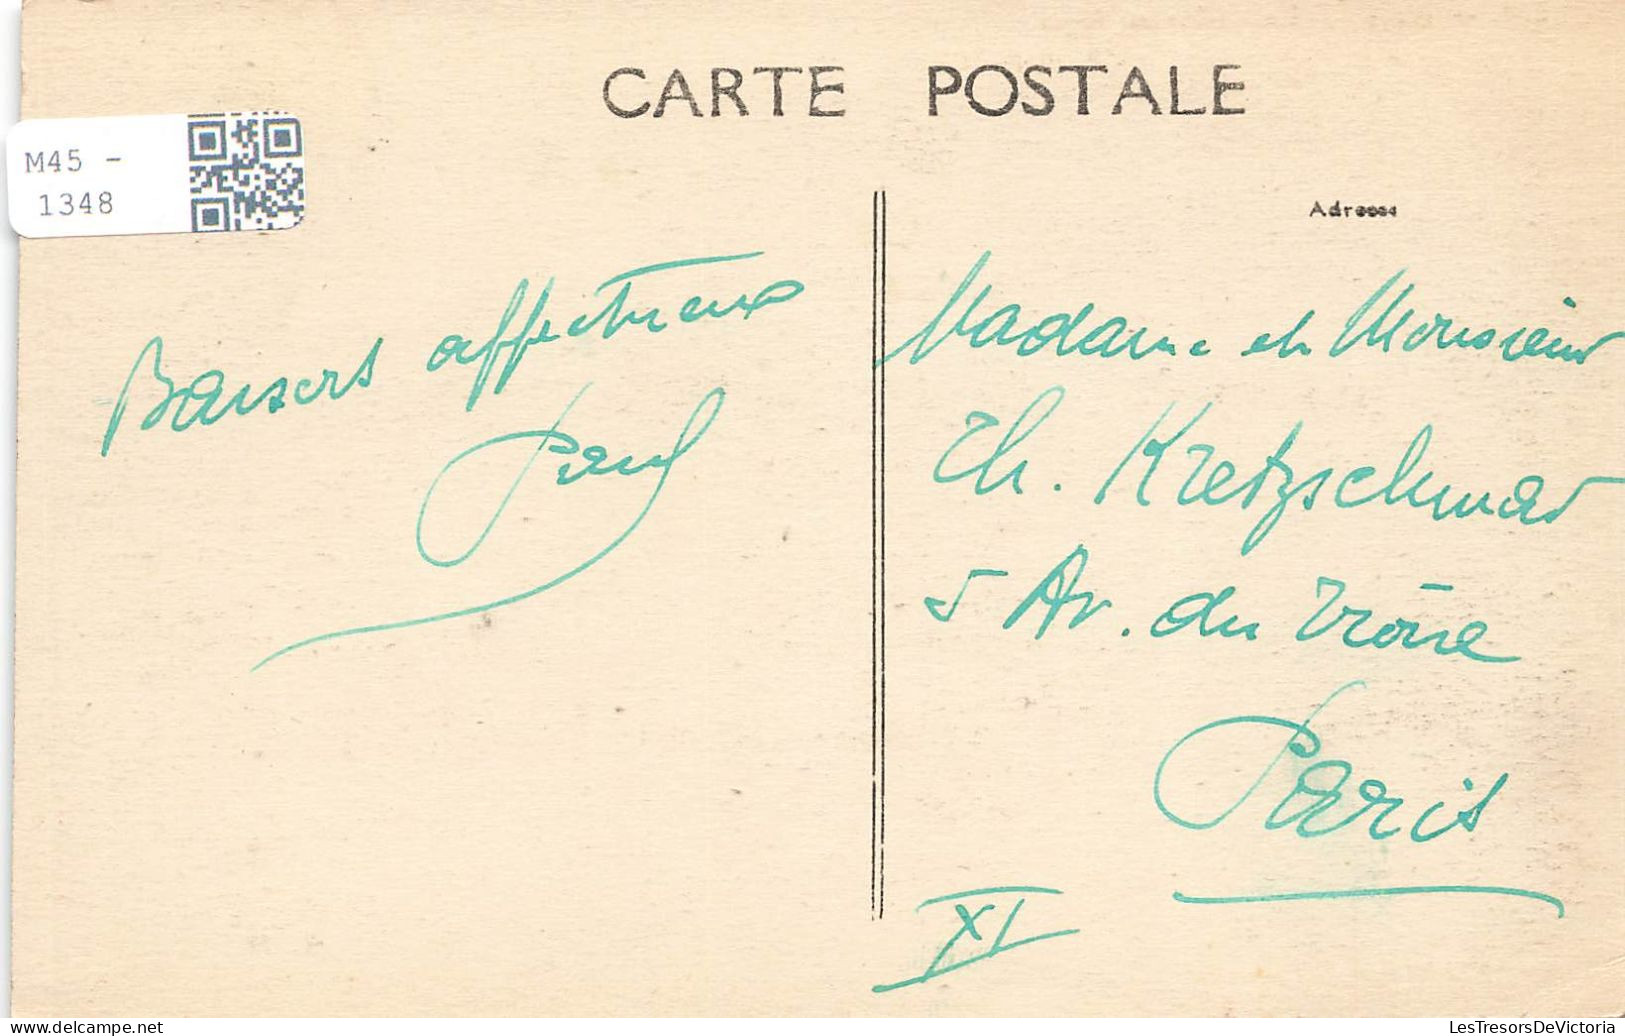 CARTE POSTALE
M45 -
1348
Adresse
Baisers affectueux
Paul
Madame et Monsieur
Th. Kretzschmar
5 Av. du Trône
Paris
XI
delcampe.net
LesTresorsDeVictoria